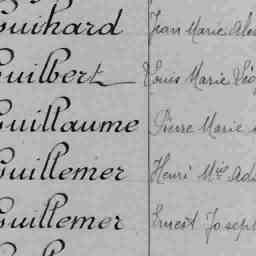 Guihard Jean Marie
Guilbert Louis Marie
Guillaume Pierre Marie
Guillemer Henri Mie
Guillemer Ernest Joseph